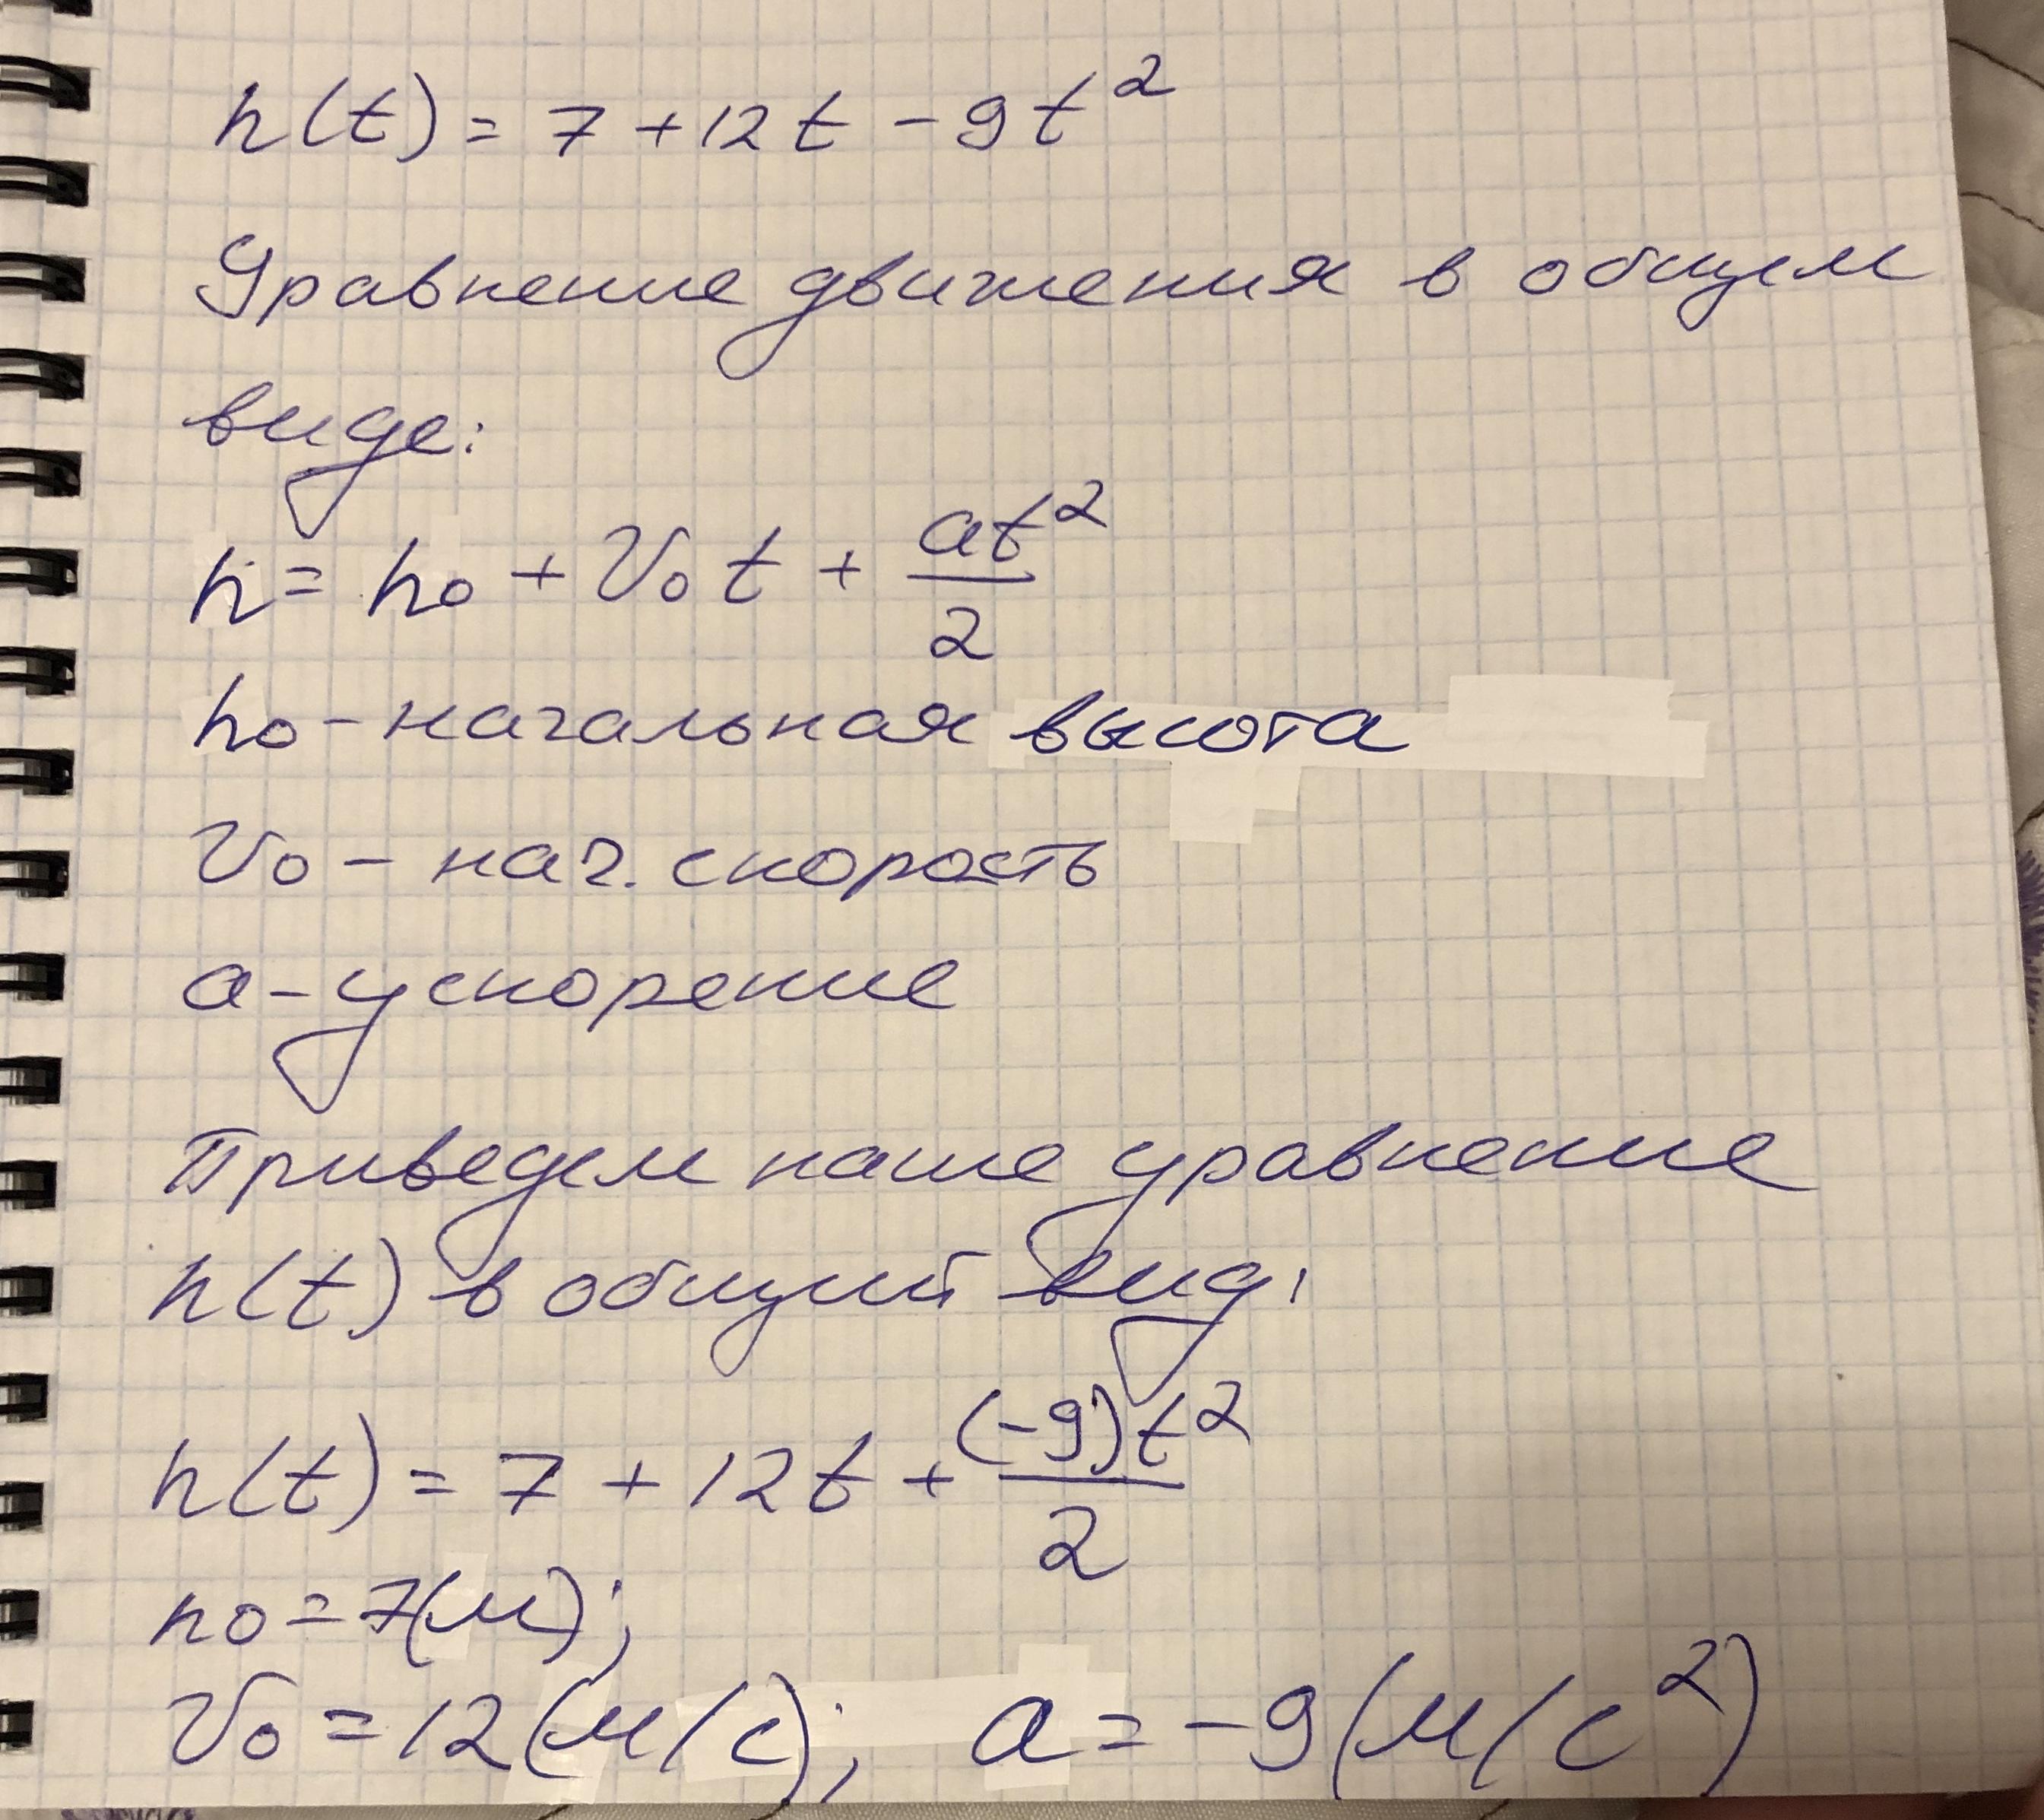 h(t) = 7 + 12t - 9t²
Уравнение движения в общем
виде:
h = h₀ + V₀t + at²/2
h₀ - начальная высота
V₀ - нач. скорость
a - ускорение
Приведем наше уравнение
h(t) в общий вид:
h(t) = 7 + 12t + (-9)t²/2
h₀ = 7(м);
V₀ = 12(м/с); a = -9(м/с²)